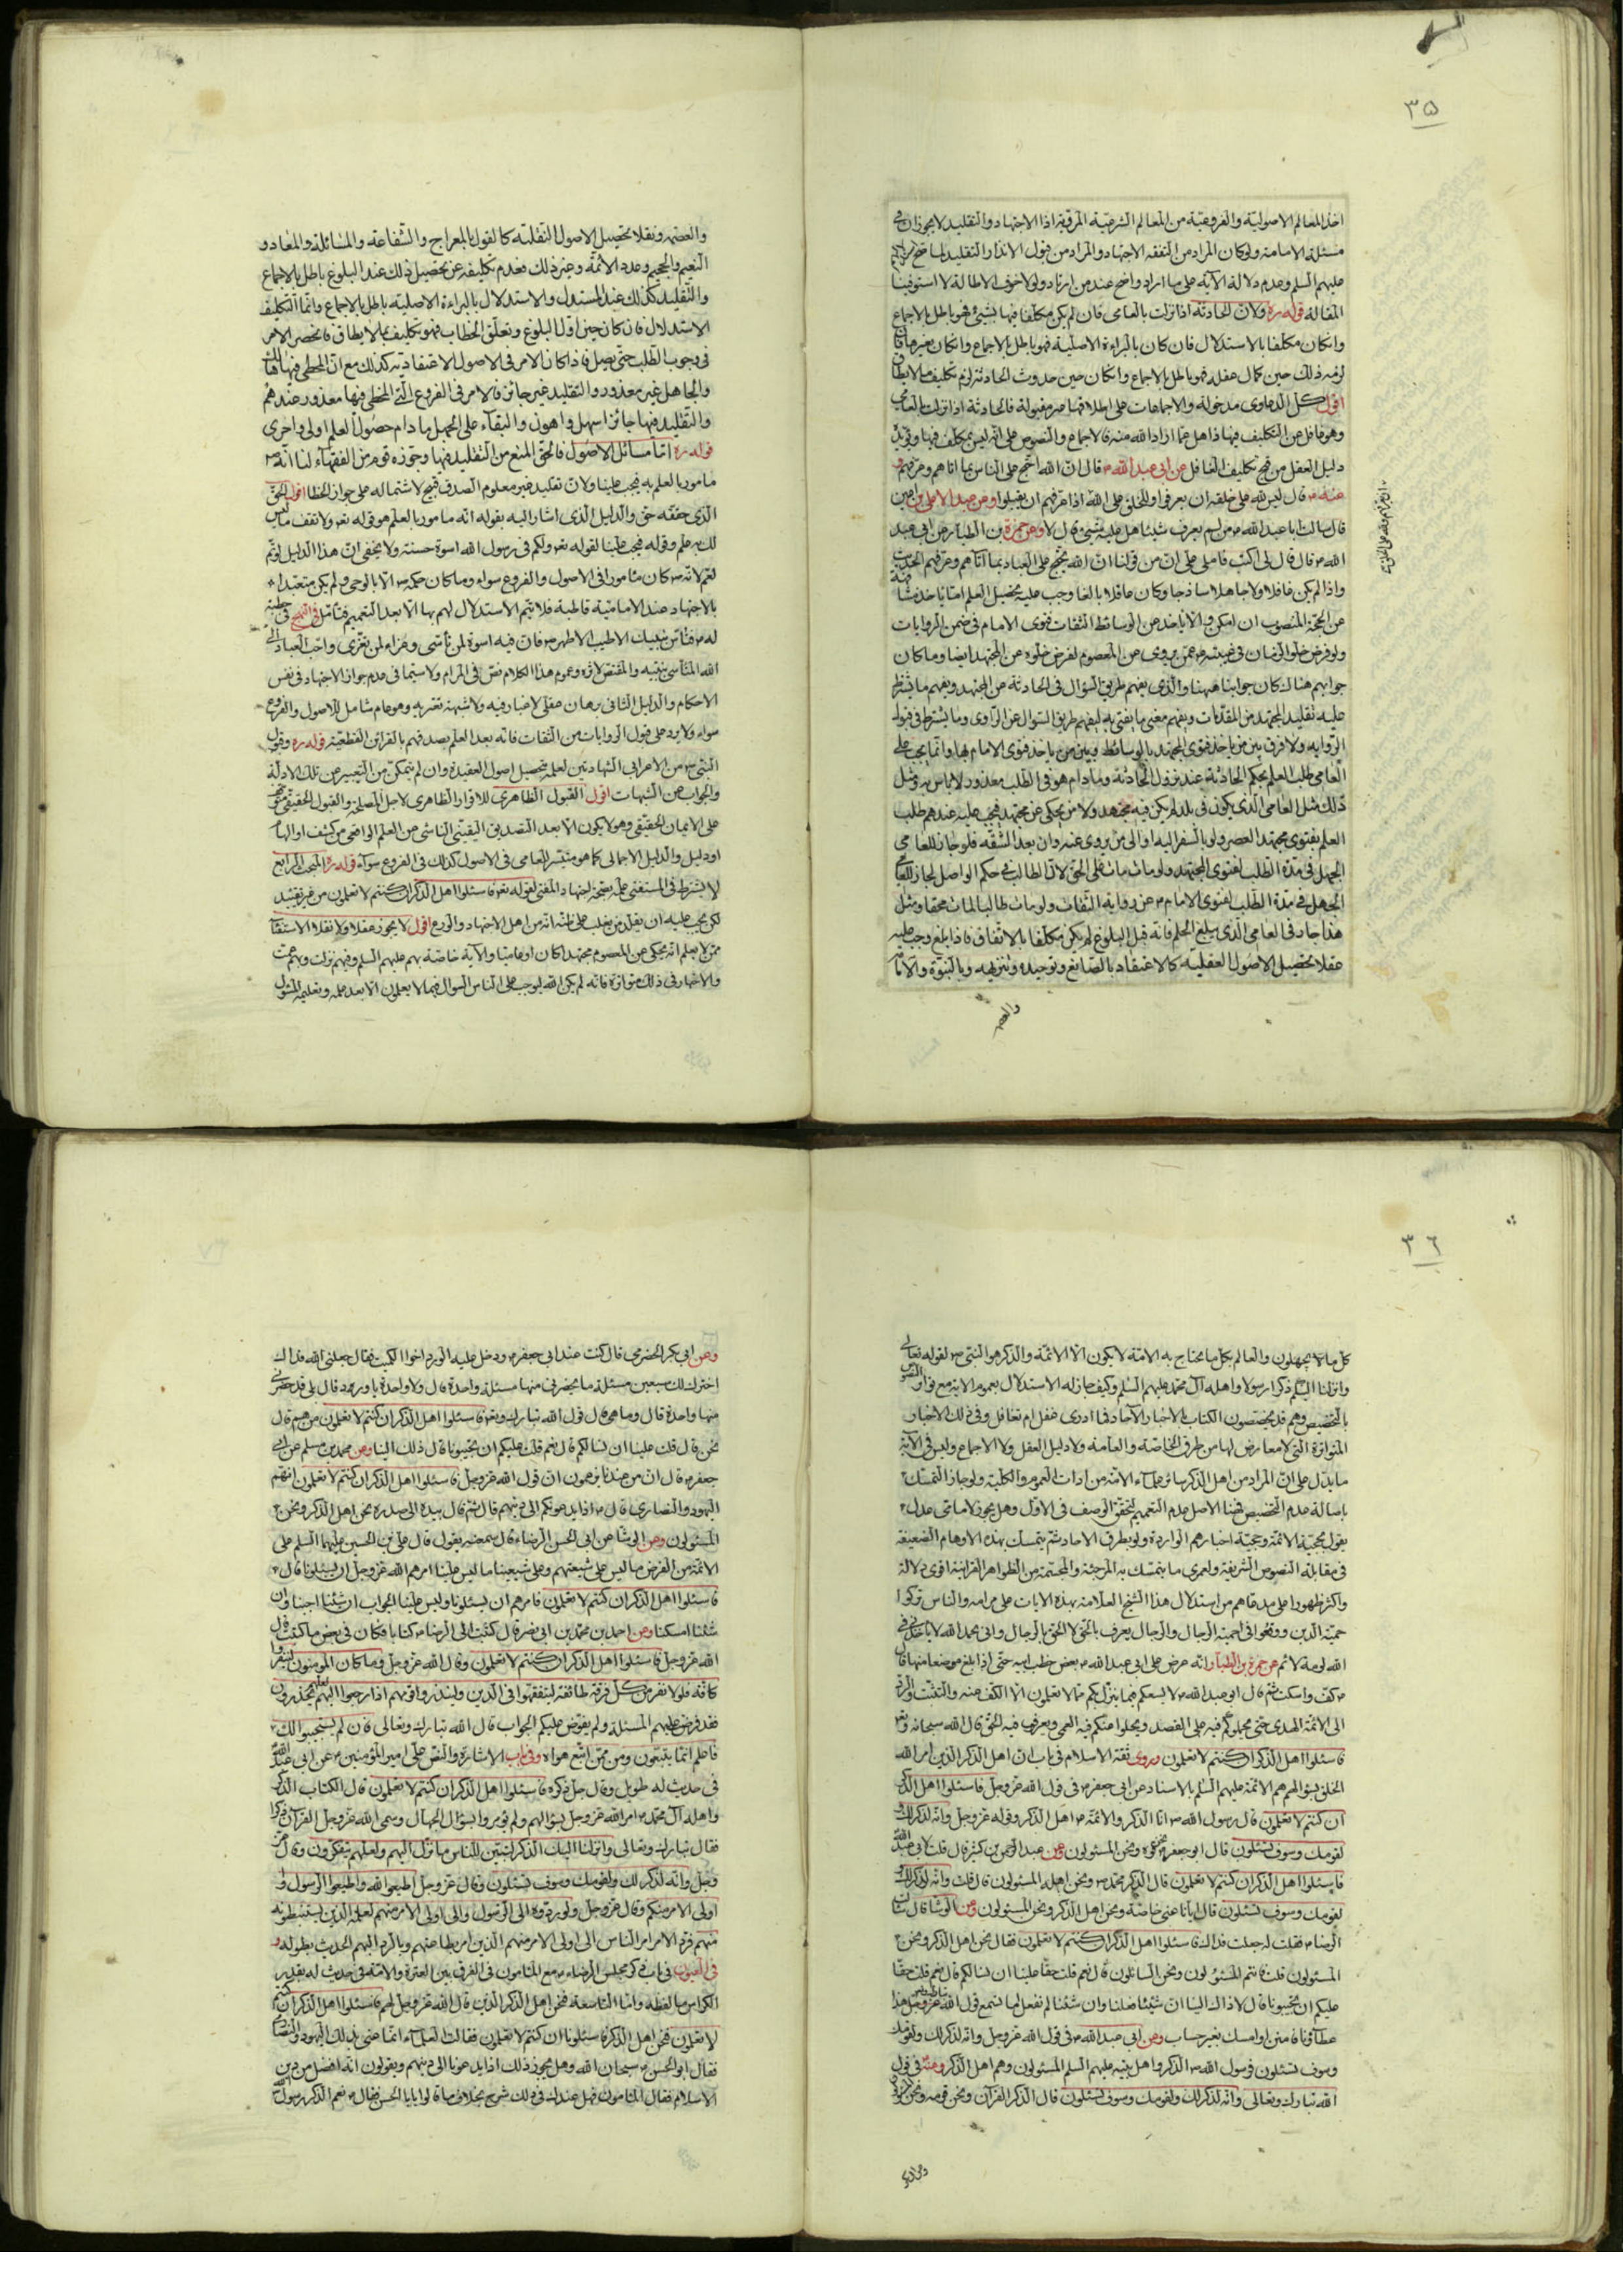 ٣٥
اخذ المعالم الاصولية والفروعية من المعالم الشرعية المرقية اذا الاجتهاد والتقليد لا يجوزان في
مسئلة الامامة ولو كان المراد من التفقه الاجتهاد والمراد من قبول الانذار التقليد لما صح
عليهم السلم وعدم دلالة الآية على ما اراد واضح عند من ارتاد ولولا خوف الاطالة لاستوفينا
المقالة قوله ره ولان الحادثة اذا نزلت بالعامى فان لم يكن مكلفا فيها بشيئ فهو باطل بالاجماع
وان كان مكلفا بالاستدلال فان كان بالبراءة الاصلية فهو باطل بالاجماع وان كان بغيرها فان
لزمه ذلك حين كمال عقله فهو باطل بالاجماع وان كان حين حدوث الحادثة لزم تكليف ما لا يطاق
اقول كل الدعاوى مدخولة والاجماعات على اطلاقها غير مقبولة فالحادثة اذا نزلت بالعامى
وهو غافل عن التكليف فيها ذاهل عما اراد الله منه فالاجماع والنصوص على انه ليس بمكلف فيها ويؤيده
دليل العقل من قبح تكليف الغافل عن ابى عبد الله ع قال ان الله احتج على الناس بما اتاهم وعرفهم
عنه ع قال ليس لله على خلقه ان يعرفوا وللخلق على الله اذا عرفهم ان يقبلوا وعن عبد الاعلى بن اعين
قال سالت ابا عبد الله ع من لم يعرف شيئا هل عليه شيئ قال لا وعن حمزة بن الطيار عن ابى عبد
الله ع قال قال لى اكتب فاملى على ان من قولنا ان الله يحتج على العباد بما آتاهم وعرفهم الحديث
واذا لم يكن غافلا ولا جاهلا ساذجا وكان عاقلا بالغا وجب عليه تحصيل العلم اما باخذ
عن الحجة المنصوب ان امكن والا ياخذ من الوسائط الثقات فتوى الامام في ضمن الروايات
ولو فرض خلو الزمان في غيبته ع عمن يروى عن المعصوم لفرض خلوه عن المجتهد ايضا وما كان
جوابهم هناك كان جوابنا ههنا والذى يفهم طريق السؤال في الحادثة عن المجتهد ويفهم ما يتفطر
عليه تقليد المجتهد من المقدمات ويفهم معنى ما يفتى به ليفهم طريق السوال عن الراوى وما يشترط في قوله
الرواية ولا فرق بين من ياخذ فتوى المجتهد بالوسائط وبين من ياخذ فتوى الامام بها وانما يجب على
العامى طلب العلم بحكم الحادثة عند نزول الحادثة وما دام هو في الطلب معذور لا باس به ومثل
ذلك مثل العامى الذى يكون في بلد لم يكن فيه مجتهد ولا من يحكى عن مجتهد فيجب عليه عندهم طلب
العلم بفتوى مجتهد العصر ولو بالسفر اليه او الى من يروى عنه وان بعد الشقه فلو جاز للعامى
الجهل في مدة الطلب لفتوى المجتهد ولو مات مات على الحق لان الطالب في حكم الواصل لجاز للعامى
الجهل في مدة الطلب لفتوى الامام ع عن رواية الثقات ولو مات طالبا لمات محقا ومثل
هذا جاد في العامى الذى يبلغ الحلم فانه قبل البلوغ لم يكن مكلفا بالاتفاق فاذا بلغ وجب عليه
عقلا تحصيل الاصول العقلية كالاعتقاد بالصانع وتوحيده وتنزيهه وبالنبوة والامامة
والعصمة
والعصمة ونقلا تحصيل الاصول النقلية كالقول بالمعراج والشفاعة والمسائلة والمعاد و
النعيم والجحيم وعدد الائمة وغير ذلك فعدم تكليفه عن تحصيل ذلك عند البلوغ باطل بالاجماع
والتقليد كذلك عند المستدل والاستدلال بالبراءة الاصلية باطل بالاجماع وانما التكليف
الاستدلال فان كان حين اول البلوغ وتعلق الخطاب فهو تكليف بما لا يطاق فانحصر الامر
في وجوب الطلب حتى يصل فاذا كان الامر في الاصول الاعتقادية كذلك مع ان المخطى فيها
والجاهل غير معذور والتقليد غير جائز فالامر في الفروع التى المخطى فيها معذور عندهم
والتقليد فيها جائز اسهل واهون والبقاء على الجهل ما دام حصول العلم اولى واحرى
قوله ره اما مسائل الاصول فالحق المنع من التقليد فيها وجوزه قوم من الفقهاء لنا انه ع
مامور بالعلم به فيجب علينا ولان تقليد غير معلوم الصدق قبيح لاشتماله على جواز الخطا اقول الحق
الذى حققه حق والدليل الذى اشار اليه بقوله انه مامور بالعلم هو قوله تع ولا تقف ما ليس
لك به علم وقوله فيجب علينا لقوله تع ولكم في رسول الله اسوة حسنة ولا يخفى ان هذا الدليل
لانه ع كان مامورا في الاصول والفروع سواء وما كان حكمه ع الا بالوحى ولم يكن متعبدا
بالاجتهاد عند الامامية قاطبة فلا يتم الاستدلال لهم بها الا بعد التعميم فتامل في النهج في خطبة
له ع فتاس بنبيك الاطيب الاطهر ص فان فيه اسوة لمن تأسى وعزاء لمن تعزى واحب العباد الى
الله المتأسى بنبيه والمقتص لاثره وعموم هذا الكلام نص في المرام ولا سيما في عدم جواز الاجتهاد في نفس
الاحكام والدليل الثانى برهان عقلى لا غبار فيه ولا شبهة تعتريه وهو عام شامل للاصول والفروع
سواء ولا يرد على قبول الروايات من الثقات فانه بعد العلم بصدقهم بالقرائن القطعية قوله ره وقبول
النبى ص من الاعرابى الشهادتين لعلمه بتحصيل اصول العقيدة وان لم يتمكن من التعبير عن تلك الادلة
والجواب عن الشبهات اقول القبول الظاهرى للاقرار الظاهرى لاجل المصلحة والقبول الحقيقى
على الايمان الحقيقى وهو لا يكون الا بعد التصديق اليقينى الناشى من العلم الواقعى من كشف او الهام
او دليل والدليل الاجمالى كما هو متيسر للعامى في الاصول كذلك في الفروع سواء قوله ره المبحث الرابع
لا يشترط في المستفتى علمه بصحة اجتهاد المفتى لقوله تع فاسئلوا اهل الذكر ان كنتم لا تعلمون من غير تقييد
لكن يجب عليه ان يقلد من يغلب على ظنه انه من اهل الاجتهاد والورع اقول لا يجوز عقلا ولا نقلا الاستفتاء
ممن لا يعلم انه يحكى عن المعصوم مجتهدا كان او عاميا والآية خاصة بهم عليهم السلم وفيهم نزلت وبهم تمت
والاخبار في ذلك متواترة فانه لم يكن الله ليوجب على الناس السوال فيما لا يعلمون الا بعد علمه وتعليمه المسئول
٣٦
كل ما لا يجهلون والعالم بكل ما يحتاج به الامة لا يكون الا الائمة والذكر هو النبى ص لقوله تعالى
وانزلنا اليكم ذكرا رسولا واهله آل محمد عليهم السلم وكيف جاز له الاستدلال بعموم الاية مع تواتر النصوص
بالتخصيص وهم قد يخصصون الكتاب بالاخبار الآحاد فما ادرى غفل ام تغافل وفى ذلك الاخبار
المتواترة التى لا معارض لها من طرق الخاصة والعامة ولا دليل العقل ولا الاجماع وليس في الآية
ما يدل على ان المراد من اهل الذكر سائر علماء الامة من ادات العموم والكلية ولو جاز التمسك
باصالة عدم التخصيص قلنا الاصل عدم التعميم لتحقق الوصف في الاول وهل يجوز لامامى عدل
يقول بحجية الائمة وحجية اخبارهم الواردة ولو بطرق الاحاد ثم يتمسك بهذه الاوهام الضعيفة
في مقابلة النصوص الشريفة ولعمرى ما يتمسك به المرجئة والمجسمة من الظواهر القرانية اقوى دلالة
واكثر ظهورا على مدعاهم من استدلال هذا الشيخ العلامة بهذه الايات على مرامه والناس تركوا
حمية الدين ووقعوا في حمية الرجال والرجال يعرف بالحق لا الحق بالرجال وانى بحمد الله لا ياخذنى في
الله لومة لائم عن حمزة بن الطيار انه عرض على ابى عبد الله ع بعض خطب ابيه حتى اذا بلغ موضعا منها قال
ع كف واسكت ثم قال ابو عبد الله ع لا يسعكم فيما ينزل بكم مما لا تعلمون الا الكف عنه والتثبت والرد
الى الائمة الهدى حتى يحملوكم فيه على القصد ويجلوا عنكم فيه العمى ويعرفوكم فيه الحق قال الله سبحانه وتع
فاسئلوا اهل الذكر ان كنتم لا تعلمون وروى ثقة الاسلام في باب ان اهل الذكر الذين امر الله
الخلق بسؤالهم هم الائمة عليهم السلم بالاسناد عن ابى جعفر ع في قول الله عز وجل فاسئلوا اهل الذكر
ان كنتم لا تعلمون قال رسول الله ص انا الذكر والائمة ع اهل الذكر وقوله عز وجل وانه لذكر لك و
لقومك وسوف تسئلون قال ابو جعفر ع نحن قومه ونحن المسئولون وعن عبد الرحمن بن كثير قال قلت لابى عبد الله
فاسئلوا اهل الذكر ان كنتم لا تعلمون قال الذكر محمد ص ونحن اهله المسئولون قال قلت وانه لذكر لك و
لقومك وسوف تسئلون قال ايانا عنى خاصة ونحن اهل الذكر ونحن المسئولون وعن الوشا قال سالت
الرضا ع فقلت له جعلت فداك فاسئلوا اهل الذكر ان كنتم لا تعلمون فقال نحن اهل الذكر ونحن
المسئولون قلت فانتم المسئولون ونحن السائلون قال نعم قلت حقا علينا ان نسالكم قال نعم قلت حقا
عليكم ان تجيبونا قال لا ذاك الينا ان شئنا فعلنا وان شئنا لم نفعل اما تسمع قول الله عز وجل هذا
عطاؤنا فامنن او امسك بغير حساب وعن ابى عبد الله ع في قول الله عز وجل وانه لذكر لك ولقومك
وسوف تسئلون فرسول الله ص الذكر واهل بيته عليهم السلم المسئولون وهم اهل الذكر وعنه في قول
الله تبارك وتعالى وانه لذكر لك ولقومك وسوف تسئلون قال الذكر القرآن ونحن قومه ونحن المسئولون
وعن ابى بكر
وعن ابى بكر الحضرمى قال كنت عند ابى جعفر ع ودخل عليه الورد اخوا الكميت فقال جعلنى الله فداك
اخترت لك سبعين مسئلة ما يحضرنى منها مسئلة واحدة قال ولا واحدة يا ورد قال بلى قد حضرنى
منها واحدة قال وما هى قال قول الله تبارك وتع فاسئلوا اهل الذكر ان كنتم لا تعلمون من هم قال
نحن قال قلت علينا ان نسالكم قال نعم قلت عليكم ان تجيبونا قال ذلك الينا وعن محمد بن مسلم عن ابى
جعفر ع قال ان من عندنا يزعمون ان قول الله عز وجل فاسئلوا اهل الذكر ان كنتم لا تعلمون انهم
اليهود والنصارى قال ع اذا يدعونكم الى دينهم قال ثم قال بيده الى صدره نحن اهل الذكر ونحن
المسئولون وعن الوشا عن ابى الحسن الرضا ع قال سمعته يقول قال على بن الحسين عليهما السلم على
الائمة من الفرض ما ليس على شيعتهم وعلى شيعتنا ما ليس علينا امرهم الله عز وجل ان يسئلونا قال
فاسئلوا اهل الذكر ان كنتم لا تعلمون فامرهم ان يسئلونا وليس علينا الجواب ان شئنا اجبنا وان
شئنا امسكنا وعن احمد بن محمد بن ابى نصر قال كتبت الى الرضا ع كتابا فكان في بعض ما كتبت قال
الله عز وجل فاسئلوا اهل الذكر ان كنتم لا تعلمون وقال الله عز وجل وما كان المومنون لينفروا
كافة فلولا نفر من كل فرقة طائفة ليتفقهوا في الدين ولينذروا قومهم اذا رجعوا اليهم لعلهم يحذرون
فقد فرض عليهم المسئلة ولم يفرض عليكم الجواب قال الله تبارك وتعالى فان لم يستجيبوا لك
فاعلم انما يتبعون ومن ممن اتبع هواه وفى باب الاشارة والنص على امير المؤمنين ع عن ابى عبد الله
في حديث له طويل وقال جل ذكره فاسئلوا اهل الذكر ان كنتم لا تعلمون قال الكتاب الذكر
واهله آل محمد ع امر الله عز وجل بسؤالهم ولم يؤمروا بسؤال الجهال وسمى الله عز وجل القرآن ذكرا
فقال تبارك وتعالى وانزلنا اليك الذكر لتبين للناس ما نزل اليهم ولعلهم يتفكرون وقال عز
وجل وانه لذكر لك ولقومك وسوف تسئلون وقال عز وجل اطيعوا الله واطيعوا الرسول و
اولى الامر منكم وقال عز وجل ولو ردوه الى الرسول والى اولى الامر منهم لعلمه الذين يستنبطونه
منهم فرد الامر امر الناس الى اولى الامر منهم الذين امر بطاعتهم وبالرد اليهم الحديث بطوله و
في العيون في باب ذكر مجلس الرضا ع مع المامون في الفرق بين العترة والامة في حديث له بقدر
الكراس ما لفظه واما التاسعة فنحن اهل الذكر الذين قال الله عز وجل لهم فاسئلوا اهل الذكر ان كنتم
لا تعلمون فنحن اهل الذكر فاسئلونا ان كنتم لا تعلمون فقالت العلماء انما عنى بذلك اليهود والنصارى
فقال ابو الحسن ع سبحان الله وهل يجوز ذلك اذا يدعونا الى دينهم ويقولون انه افضل من دين
الاسلام فقال المامون فهل عندك في ذلك شرح بخلاف ما قالوا يا ابا الحسن فقال ع نعم الذكر رسول الله